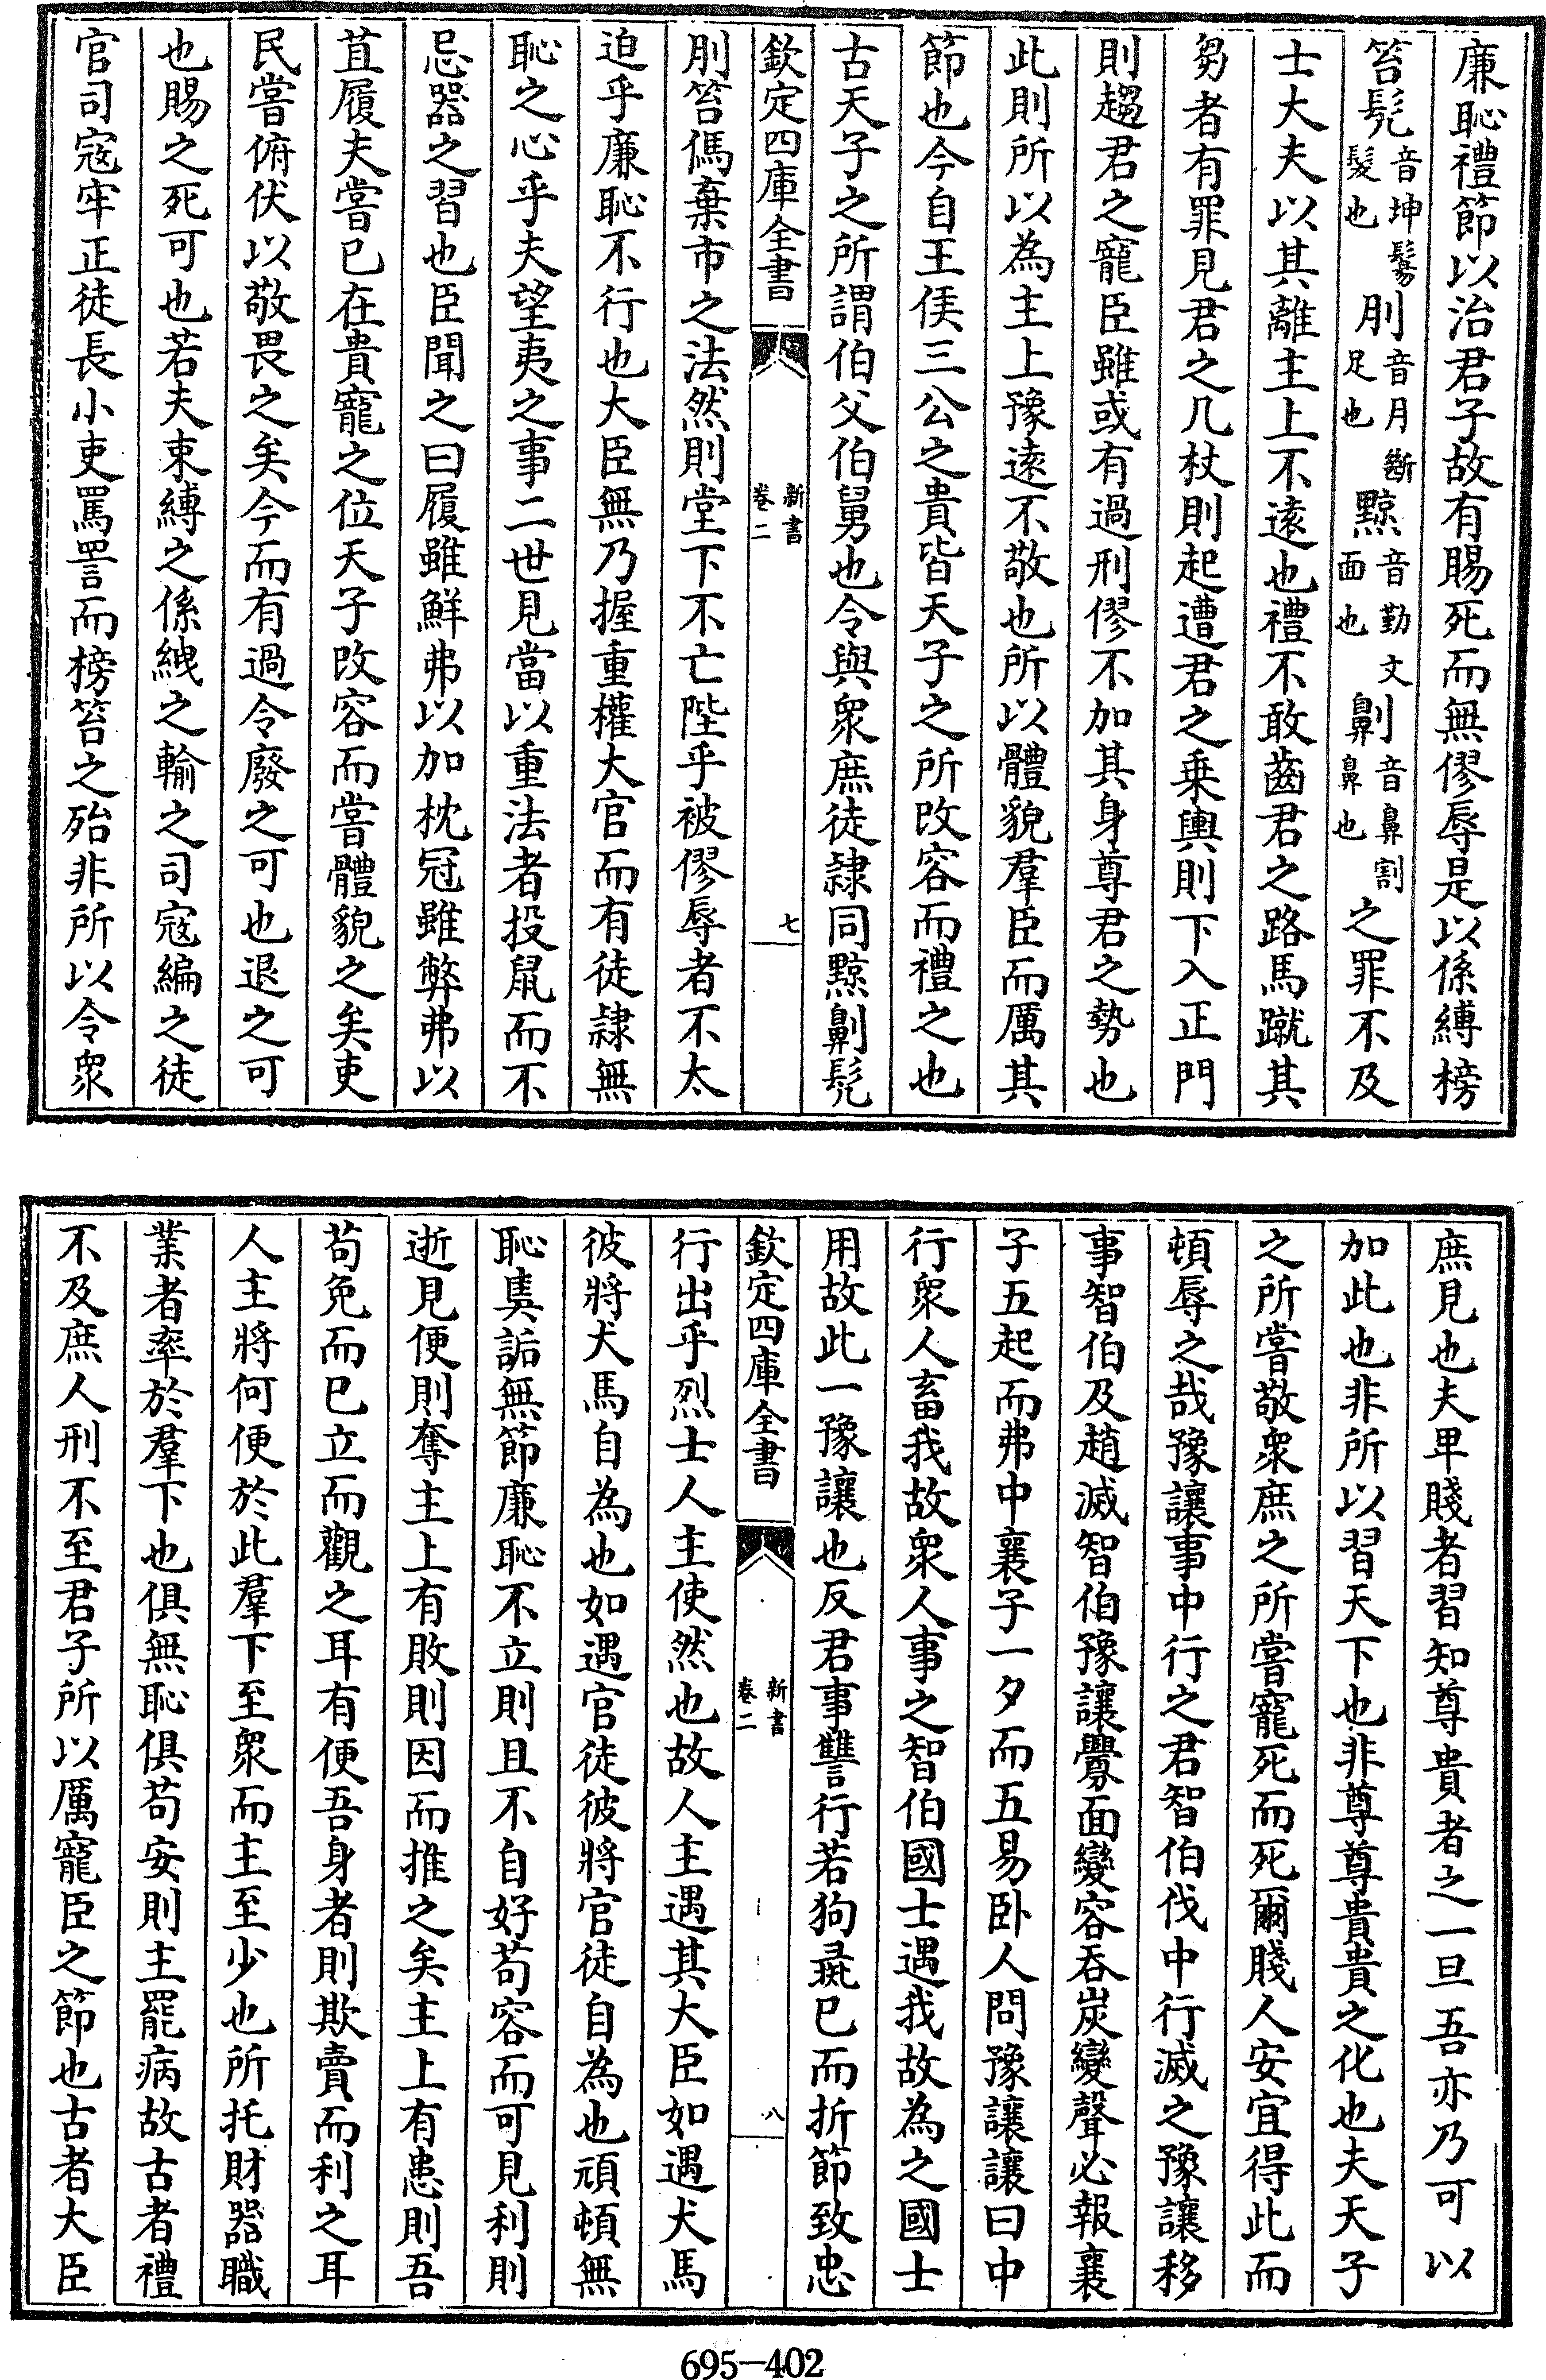 廉恥禮節以治君子故有賜死而無僇辱是以係縛榜
笞髠音坤鬄髮也刖音月斷足也黥音勤文面也劓音鼻割鼻也之罪不及
士大夫以其離主上不遠也禮不敢齒君之路馬蹴其
芻者有罪見君之几杖則起遭君之乗輿則下入正門
則趨君之寵臣雖或有過刑僇不加其身尊君之勢也
此則所以為主上豫遠不敬也所以體貌羣臣而厲其
節也今自王侯三公之貴皆天子之所改容而禮之也
古天子之所謂伯父伯舅也令與衆庶徒隷同黥劓髠
欽定四庫全書 新書 卷二 七
刖笞傌棄市之法然則堂下不亡陛乎被僇辱者不太
迫乎廉恥不行也大臣無乃握重權大官而有徒隷無
恥之心乎夫望夷之事二世見當以重法者投鼠而不
忌器之習也臣聞之曰履雖鮮弗以加枕冠雖弊弗以
苴履夫嘗已在貴寵之位天子改容而嘗體貌之矣吏
民嘗俯伏以敬畏之矣今而有過令廢之可也退之可
也賜之死可也若夫束縛之係緤之輸之司寇編之徒
官司寇牢正徒長小吏罵詈而榜笞之殆非所以令衆
庶見也夫卑賤者習知尊貴者之一旦吾亦乃可以
加此也非所以習天下也非尊尊貴貴之化也夫天子
之所嘗敬衆庶之所嘗寵死而死爾賤人安宜得此而
頓辱之哉豫讓事中行之君智伯伐中行滅之豫讓移
事智伯及趙滅智伯豫讓釁面變容吞炭變聲必報襄
子五起而弗中襄子一夕而五易卧人問豫讓讓曰中
行衆人畜我故衆人事之智伯國士遇我故為之國士
用故此一豫讓也反君事讐行若狗彘已而折節致忠
欽定四庫全書 新書 卷二 八
行出乎烈士人主使然也故人主遇其大臣如遇犬馬
彼將犬馬自為也如遇官徒彼將官徒自為也頑頓無
恥奊詬無節廉恥不立則且不自好苟容而可見利則
逝見便則奪主上有敗則因而推之矣主上有患則吾
苟免而已立而觀之耳有便吾身者則欺賣而利之耳
人主將何便於此羣下至衆而主至少也所托財器職
業者率於羣下也俱無恥俱苟安則主罷病故古者禮
不及庶人刑不至君子所以厲寵臣之節也古者大臣
695-402